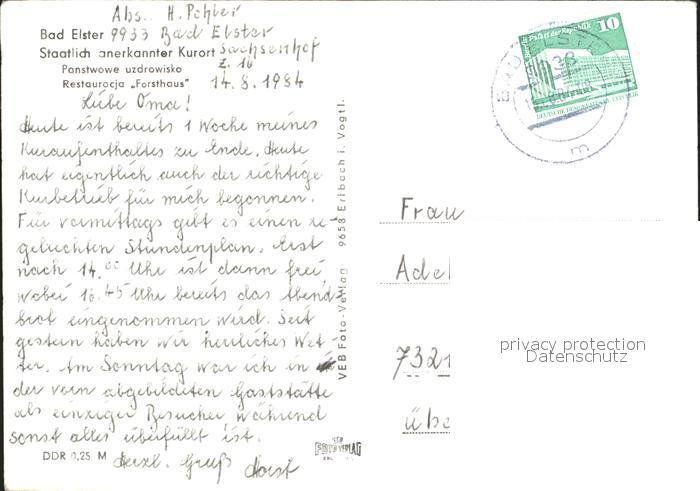 Abs. H. Pöhler
Bad Elster 9933 Bad Elster
Staatlich anerkannter Kurort Sachsenhof
Z. 16
Państwowe uzdrowisko
Restauracja „Forsthaus"
14.8.1984
Liebe Oma!
Heute ist bereits 1 Woche meines
Kuraufenthaltes zu Ende. Heute
hat eigentlich auch der richtige
Kurbetrieb für mich begonnen.
Für vormittags gibt es einen re-
gelrechten Stundenplan. Erst
nach 14.00 Uhr ist dann frei,
wobei 16.45 Uhr bereits das Abend-
brot eingenommen wird. Seit
gestern haben wir herrliches Wet-
ter. Am Sonntag war ich in
der vorn abgebildeten Gaststätte
als einziger Besucher während
sonst alles überfüllt ist.
Herzl. Gruß Horst
DDR 0,25 M
VEB Foto-Verlag 9658 Erlbach i. Vogtl.
FOTO VERLAG
10
Palast der Republik
DEUTSCHE DEMOKRATISCHE REPUBLIK
BAD ELSTER
Frau
Adel
7321
übe
privacy protection
Datenschutz